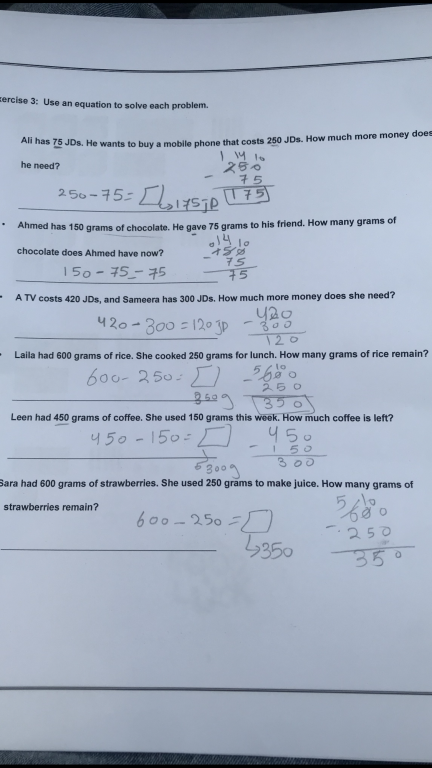 ercise 3: Use an equation to solve each problem.
Ali has 75 JDs. He wants to buy a mobile phone that costs 250 JDs. How much more money does
he need?
1 14 10
250
- 75
175
250-75=
175 JD
• Ahmed has 150 grams of chocolate. He gave 75 grams to his friend. How many grams of
chocolate does Ahmed have now?
0 14 10
150
- 75
75
150-75-75
A TV costs 420 JDs, and Sameera has 300 JDs. How much more money does she need?
420-300=120 JD
420
- 300
120
Laila had 600 grams of rice. She cooked 250 grams for lunch. How many grams of rice remain?
600-250=
350g
5 10
600
- 250
350
Leen had 450 grams of coffee. She used 150 grams this week. How much coffee is left?
450-150=
300g
450
- 150
300
Sara had 600 grams of strawberries. She used 250 grams to make juice. How many grams of
strawberries remain?
600-250=
350
5 10
600
- 250
350